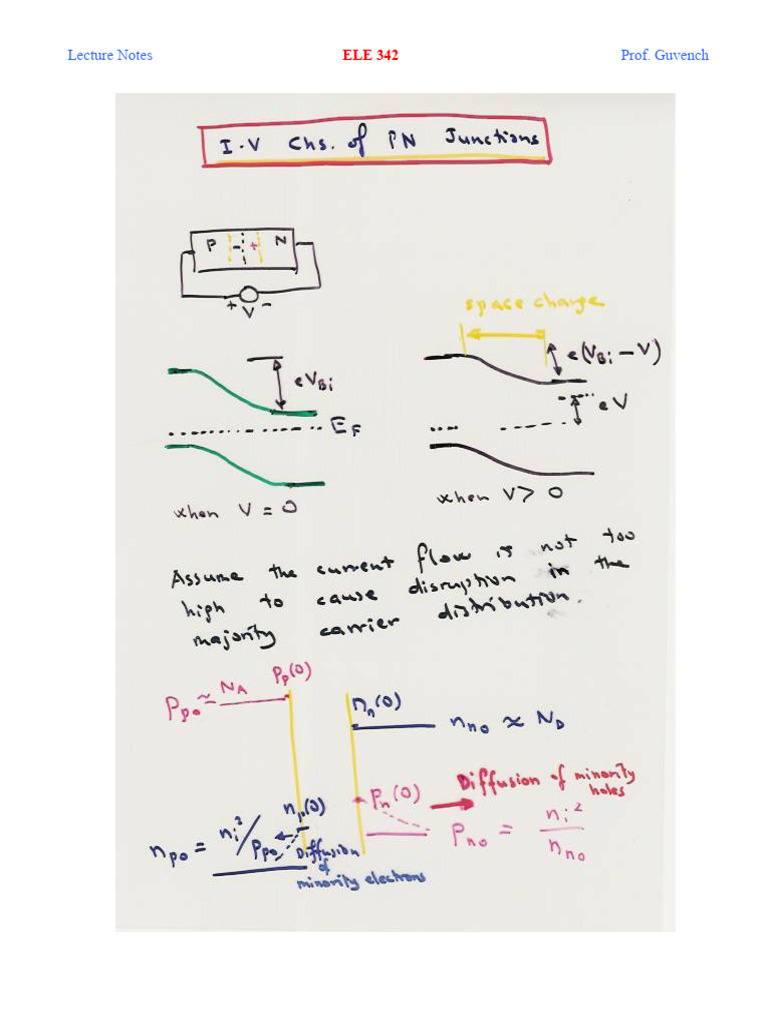 Lecture Notes ELE 342 Prof. Guvench
I-V Chs. of PN Junctions
P - + N
+ V -
space charge
eV_Bi
e(V_Bi - V)
eV
E_F
when V = 0
when V > 0
Assume the current flow is not too
high to cause disruption in the
majority carrier distribution.
P_po ≈ N_A P_p(0)
n_n(0) n_no ≈ N_D
n_po = n_i²/P_po n_p(0)
Diffusion
of
minority electrons
P_n(0)
Diffusion of minority
holes
P_no = n_i² / n_no